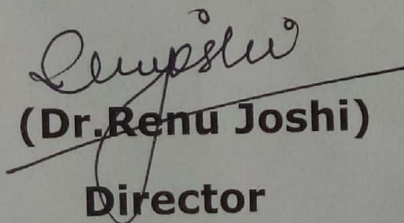 (Dr.Renu Joshi)
Director